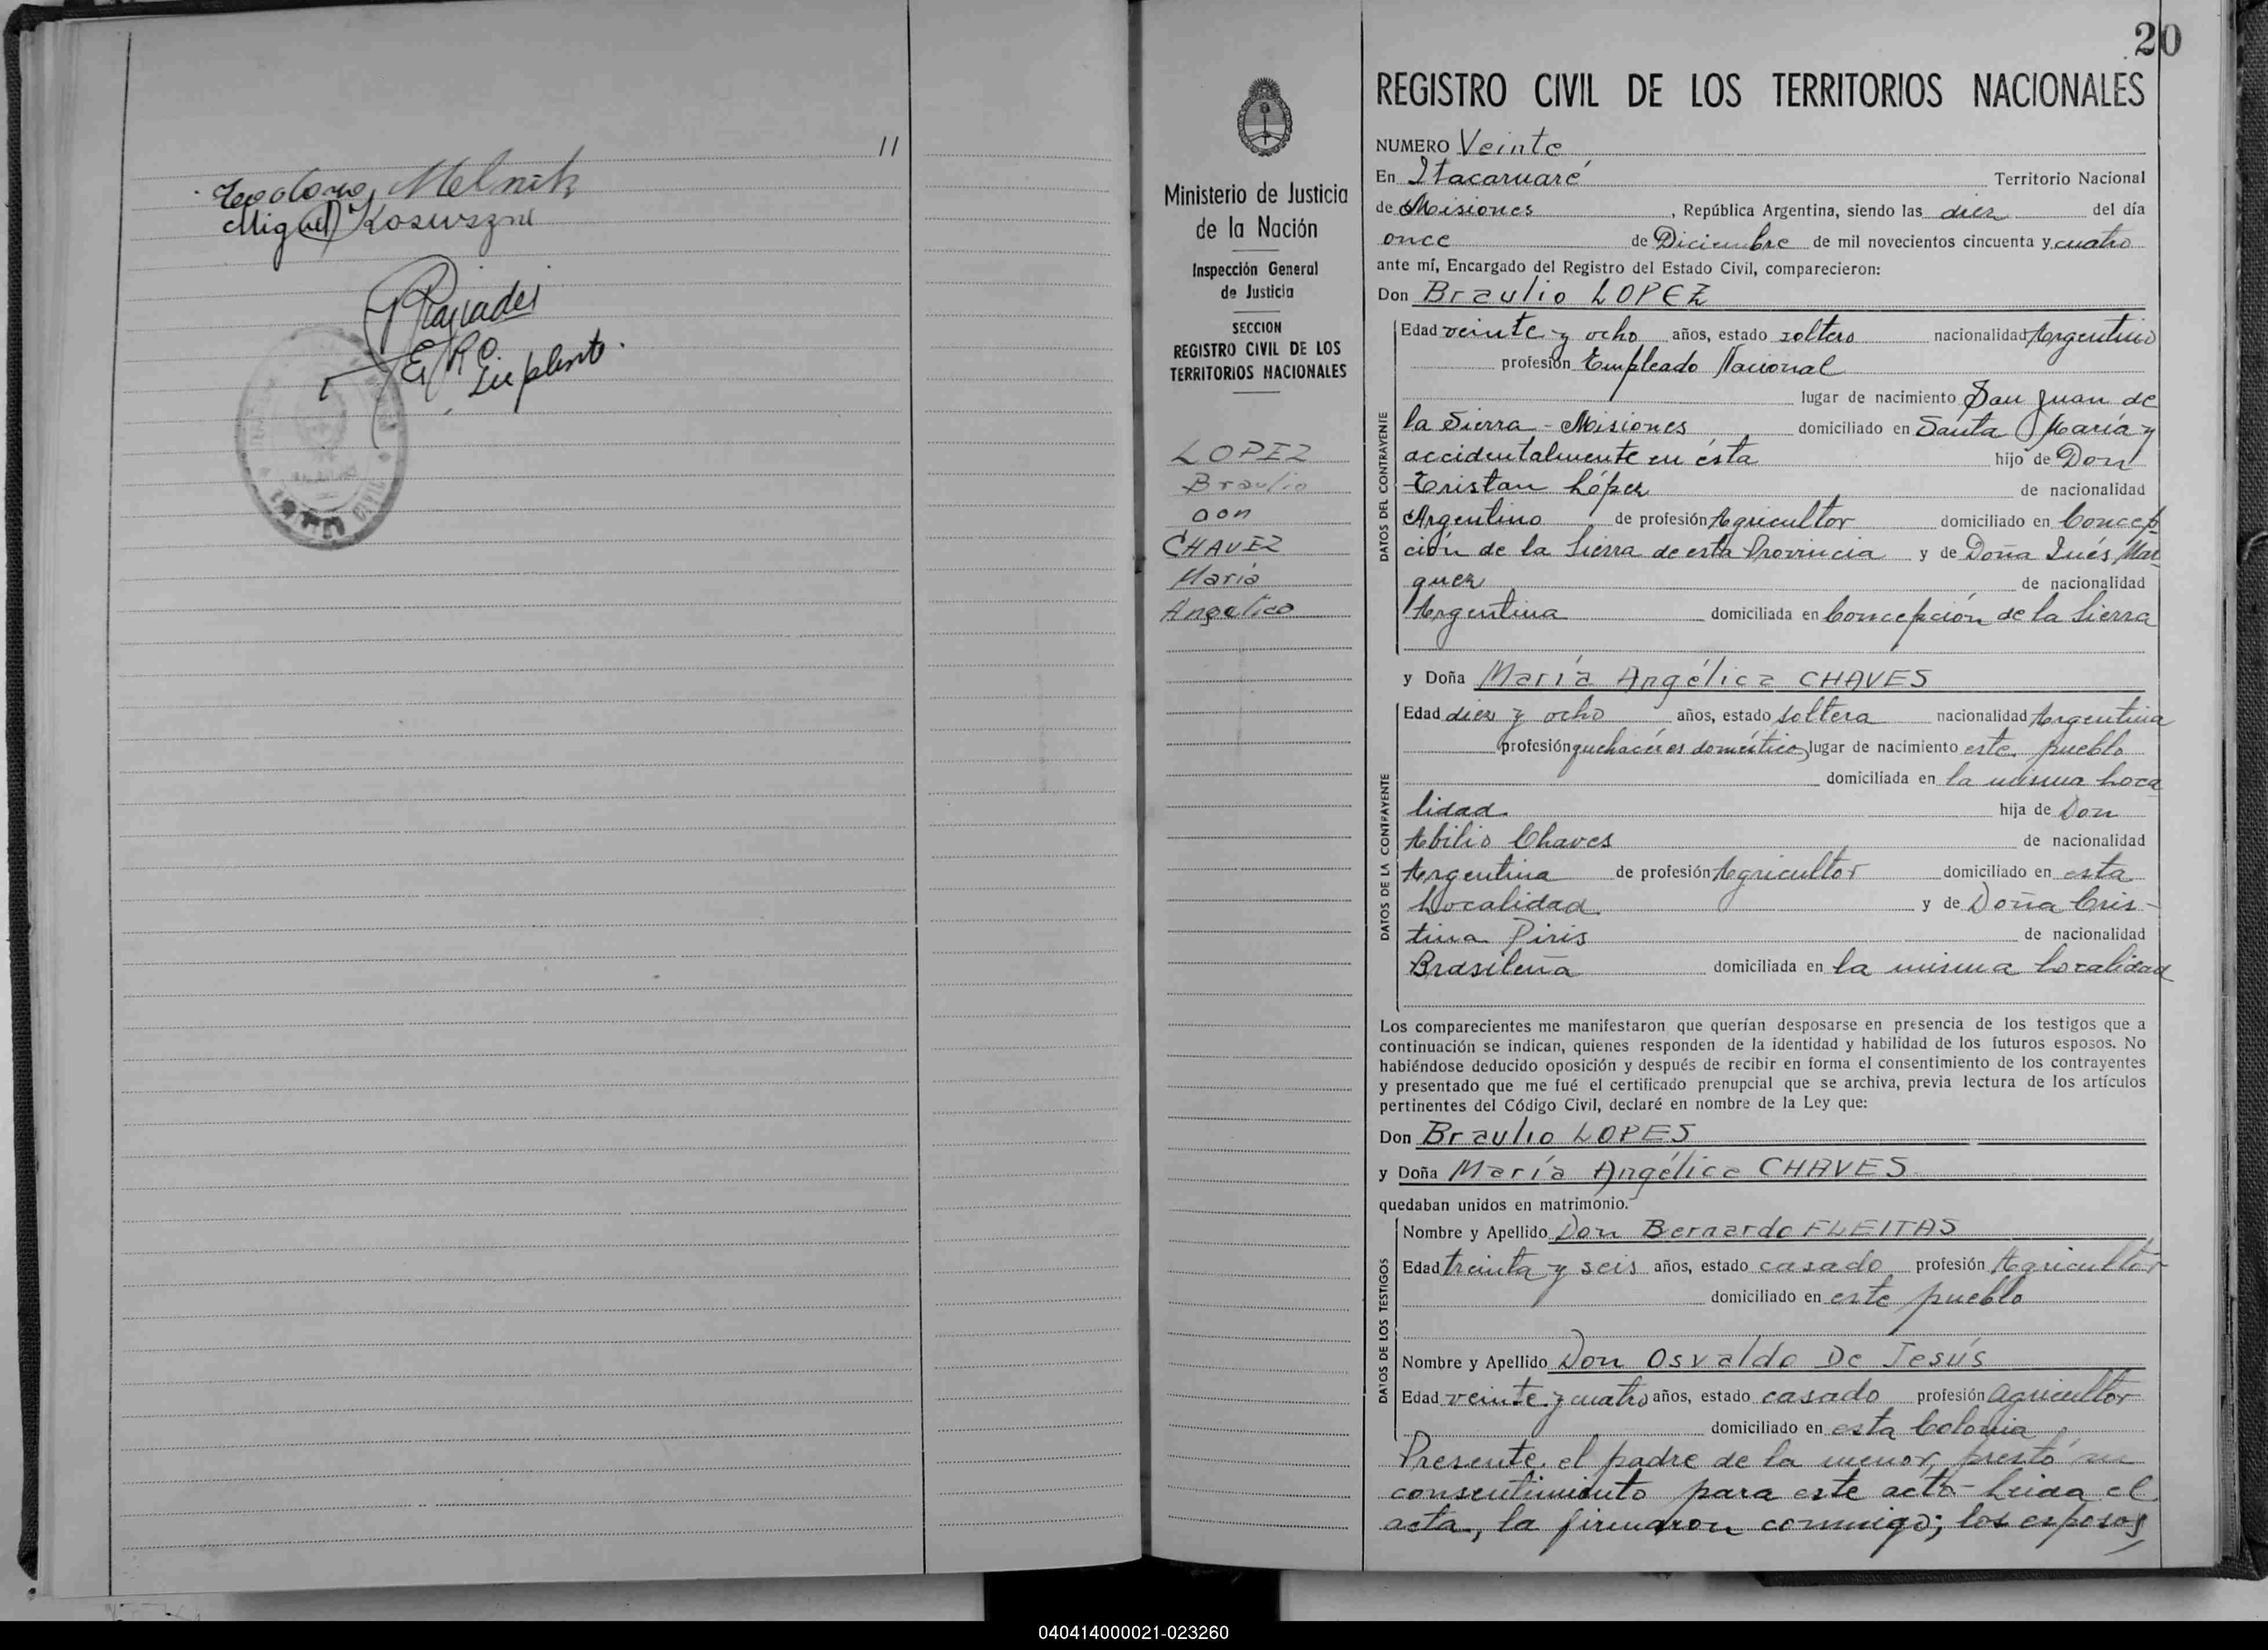 11
Teodoro Melnik
Miguel
E. R. C.
Suplente.
20
REGISTRO CIVIL DE LOS TERRITORIOS NACIONALES
Ministerio de Justicia
de la Nación
Inspección General
de Justicia
SECCION
REGISTRO CIVIL DE LOS
TERRITORIOS NACIONALES
LOPEZ
Braulio
con
CHAVEZ
María
Angelica
NUMERO Veinte
En Itacaruaré Territorio Nacional
de Misiones, República Argentina, siendo las diez del día
once de Diciembre de mil novecientos cincuenta y cuatro
ante mí, Encargado del Registro del Estado Civil, comparecieron:
Don Braulio LOPEZ
DATOS DEL CONTRAYENTE
Edad veinte y ocho años, estado soltero nacionalidad Argentino
profesión Empleado Nacional
lugar de nacimiento San Juan de
la Sierra - Misiones domiciliado en Santa María y
accidentalmente en ésta hijo de Don
Tristan López de nacionalidad
Argentino de profesión Agricultor domiciliado en Concep
ción de la Sierra de esta Provincia y de Doña Inés Mar-
quez de nacionalidad
Argentina domiciliada en Concepción de la Sierra
y Doña María Angélica CHAVES
DATOS DE LA CONTRAYENTE
Edad diez y ocho años, estado soltera nacionalidad Argentina
profesión quehaceres domésticos lugar de nacimiento este pueblo
domiciliada en la misma Loca
lidad hija de Don
Abilio Chaves de nacionalidad
Argentina de profesión Agricultor domiciliado en esta
Localidad y de Doña Cris-
tina Piris de nacionalidad
Brasileña domiciliada en la misma Localidad
Los comparecientes me manifestaron que querían desposarse en presencia de los testigos que a
continuación se indican, quienes responden de la identidad y habilidad de los futuros esposos. No
habiéndose deducido oposición y después de recibir en forma el consentimiento de los contrayentes
y presentado que me fué el certificado prenupcial que se archiva, previa lectura de los artículos
pertinentes del Código Civil, declaré en nombre de la Ley que:
Don Braulio LOPES
y Doña María Angélica CHAVES
quedaban unidos en matrimonio.
DATOS DE LOS TESTIGOS
Nombre y Apellido Don Bernardo FLEITAS
Edad treinta y seis años, estado casado profesión Agricultor
domiciliado en este pueblo
Nombre y Apellido Don Osvaldo De Jesús
Edad veinte y cuatro años, estado casado profesión agricultor
domiciliado en esta Colonia
Presente el padre de la menor, prestó su
consentimiento para este acto - Leida el
acta, la firmaron conmigo; los esposos,
040414000021-023260